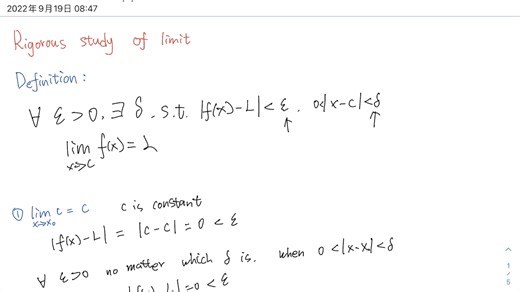 2022年9月19日 08:47
Rigorous study of limit
Definition:
∀ ε>0, ∃ δ, s.t. |f(x)-L|<ε, 0<|x-c|<δ
lim f(x)=L
x→c
① lim c = c c is constant
x→x₀
|f(x)-L| = |c-c| = 0 < ε
∀ ε>0 no matter which δ is. when 0<|x-x₀|<δ
|f(x)-L|=0<ε
1
/
5